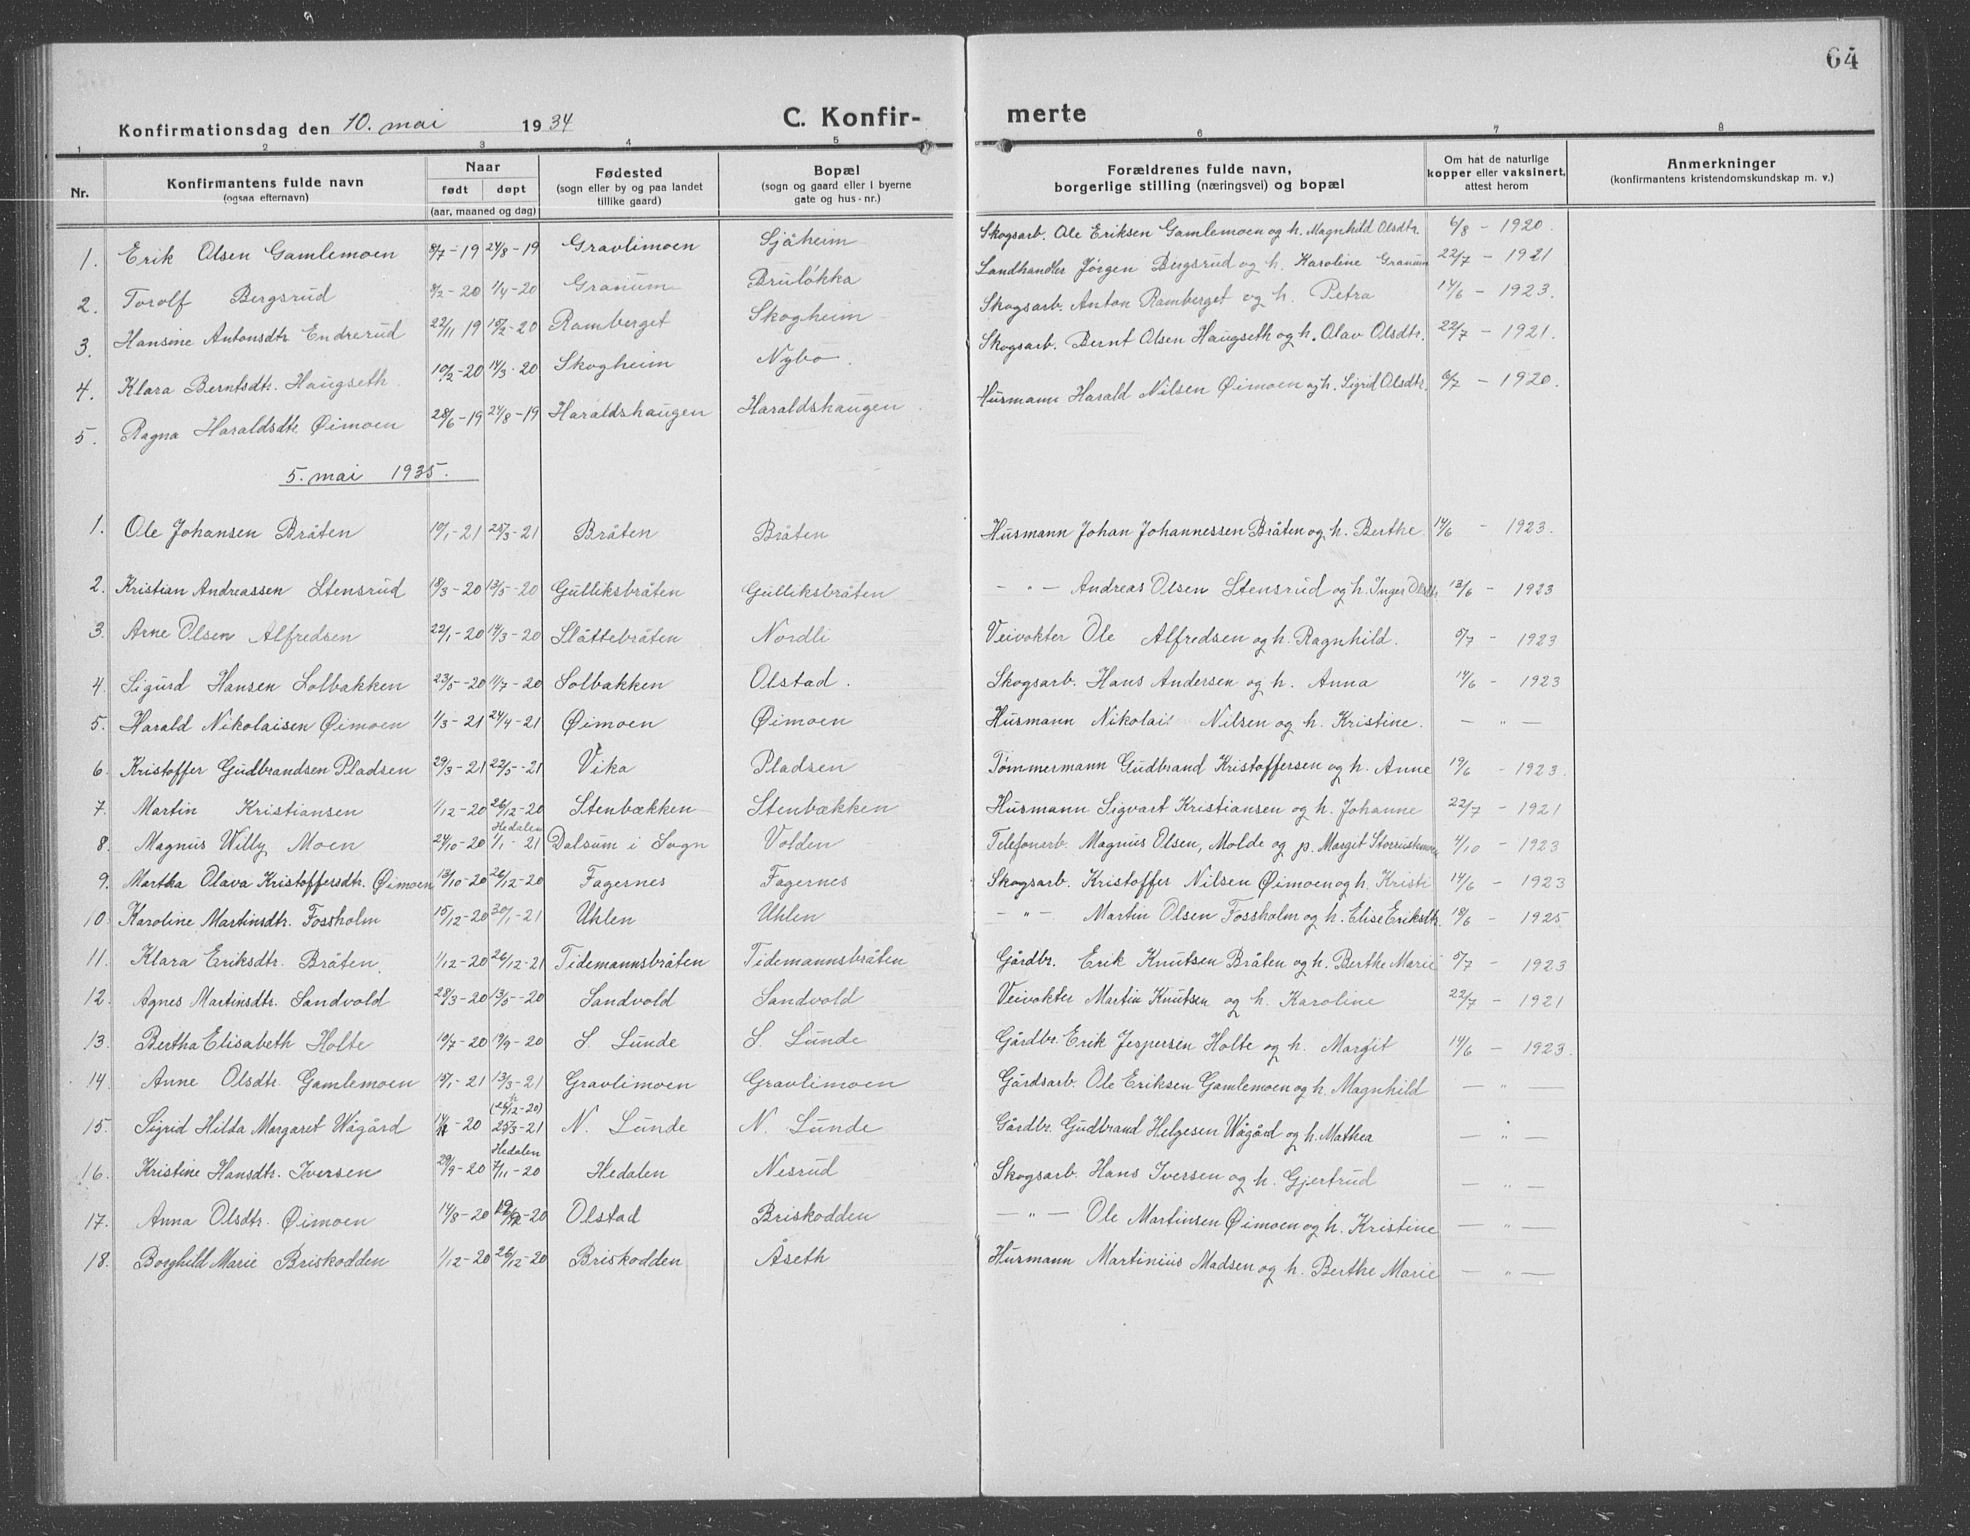 64
Konfirmationsdag den 10. mai 1934 C. Konfir- merte
1 2 3 4 5 6 7 8
Nr. Konfirmantens fulde navn (ogsaa efternavn) Naar født døpt (aar, maaned og dag) Fødested (sogn eller by og paa landet tillike gaard) Bopæl (sogn og gaard eller i byerne gate og hus-nr.) Forældrenes fulde navn, borgerlige stilling (næringsvei) og bopæl Om hat de naturlige kopper eller vaksinert, attest herom Anmerkninger (konfirmantens kristendomskundskap m. v.)
1. Erik Olsen Gamlemoen 8/7-19 24/8-19 Gravlimoen Sjåheim Skogsarb. Ole Eriksen Gamlemoen og h. Magnhild Olsdtr. 6/8 - 1920.
2. Torolf Bergsrud 8/2-20 1/4-20 Granum Bruløkka Landhandler Jørgen Bergsrud og h. Karoline Granum 22/7 - 1921
3. Hansine Antonsdtr. Endrerud 22/11 19 15/2-20 Ramberget Skogheim Skogsarb. Anton Ramberget og h. Petra 14/6 - 1923.
4. Klara Berntsdtr. Haugseth 10/2-20 14/3-20 Skogheim Nybo. Skogsarb. Bernt Olsen Haugseth og h. Olav Olsdtr. 22/7 - 1921.
5. Ragna Haraldsdtr. Øimoen 28/6-19 24/8-19 Haraldshaugen Haraldshaugen Husmann Harald Nilsen Øimoen og h. Sigrid Olsdtr. 6/7 - 1920.
5. mai 1935.
1. Ole Johansen Bråten 10/1-21 28/3-21 Bråten Bråten Husmann Johan Johannessen Bråten og h. Berthe 14/6 - 1923.
2. Kristian Andreassen Stensrud 18/3-20 13/5-20 Gulliksbråten Gulliksbråten - " - Andreas Olsen Stensrud og h. Inger Olsdtr. 13/6 - 1923
3. Arne Olsen Alfredsen 22/1-20 14/3-20 Slåttebråten Nordli Veivokter Ole Alfredsen og h. Ragnhild. 5/7 - 1923
4. Sigurd Hansen Solbakken 23/5-20 11/7-20 Solbakken Olstad. Skogsarb. Hans Andersen og h. Anna 14/6 - 1923
5. Harald Nikolaisen Øimoen 1/3-21 24/4-21 Øimoen Øimoen Husmann Nikolai Nilsen og h. Kristine. - " -
6. Kristoffer Gudbrandsen Pladsen 29/3-21 22/5-21 Vika Pladsen Tømmermann Gudbrand Kristoffersen og h. Anne 19/6 - 1923.
7. Martin Kristiansen 1/12-20 26/12-20 Stenbækken Stenbækken Husmann Sigvart Kristiansen og h. Johanne 22/7 - 1921
8. Magnus Willy Moen 24/10-20 Hedalen 1/1-21 Dalsum i Sogn Volden Telefonarb. Magnus Olsen, Molde og p. Margit Storrustemoen 4/10 - 1923
9. Martha Olava Kristoffersdtr. Øimoen 13/10-20 26/12-20 Fagernes Fagernes Skogsarb. Kristoffer Nilsen Øimoen og h. Kristi 14/6 - 1923
10. Karoline Martinsdtr. Fossholm 15/12-20 30/1-21 Uhlen Uhlen - " - Martin Olsen Fossholm og h. Elise Eriksdtr. 18/6 - 1925
11. Klara Eriksdtr. Bråten 1/12-20 26/12-21 Tidemannsbråten Tidemannsbråten Gårdbr. Erik Knutsen Bråten og h. Berthe Marie 5/7 - 1923
12. Agnes Martinsdtr. Sandvold 28/3-20 13/5-20 Sandvold Sandvold Veivokter Martin Knutsen og h. Karoline 22/7 - 1921
13. Bertha Elisabeth Holte 10/7-20 19/9-20 S. Lunde S. Lunde Gårdbr. Erik Jespersen Holte og h. Margit 14/6 - 1923.
14. Anne Olsdtr. Gamlemoen 15/1-21 13/3-21 Gravlimoen Gravlimoen Gårdsarb. Ole Eriksen Gamlemoen og h. Magnhild - " -
15. Sigrid Hilda Margaret Wågård -20 (h 26/12-20) 25/3-21 N. Lunde N. Lunde Gårdbr. Gudbrand Helgesen Wågård og h. Mathea - " -
16. Kristine Hansdtr. Iversen 29/9-20 Hedalen 7/11-20 Hedalen Nesrud Skogsarb. Hans Iversen og h. Gjertrud - " -
17. Anna Olsdtr. Øimoen 14/8-20 -20 Olstad Briskodden - " - Ole Martinsen Øimoen og h. Kristine - " -
18. Borghild Marie Briskodden 1/12-20 26/12-20 Briskodden Åseth Husmann Martinius Madsen og h. Berthe Marie - " -